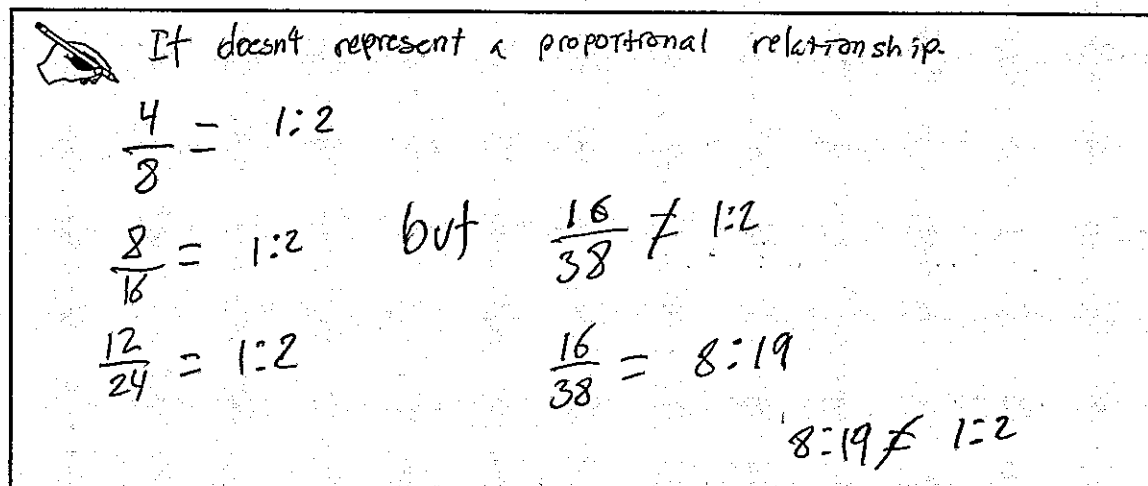 It doesn't represent a proportional relationship.
4/8 = 1:2
8/16 = 1:2 but 16/38 ≠ 1:2
12/24 = 1:2 16/38 = 8:19
8:19 ≠ 1:2